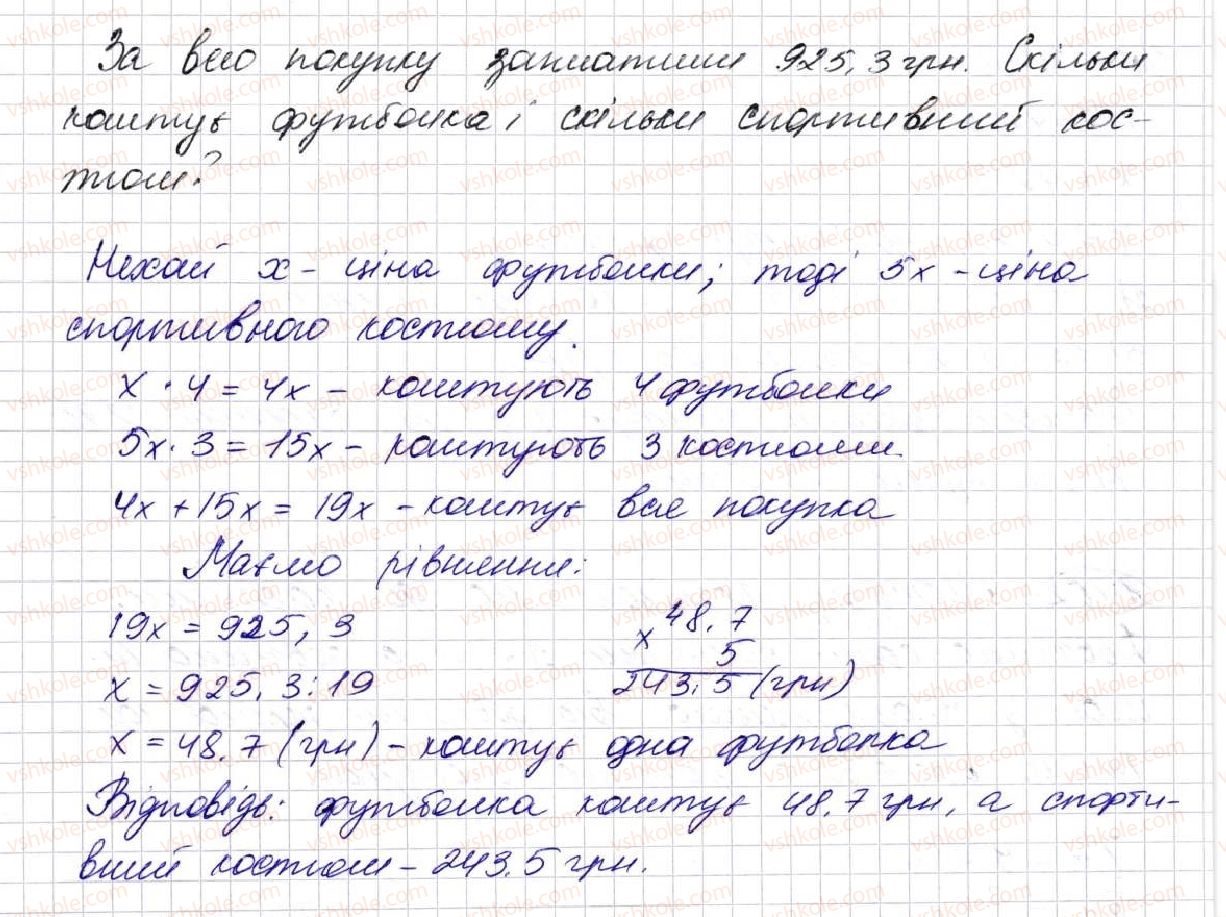 За всю покупку заплатили 925,3 грн. Скільки
коштує футболка і скільки спортивний кос-
тюм?
Нехай x - ціна футболки; тоді 5x - ціна
спортивного костюму.
x · 4 = 4x - коштують 4 футболки
5x · 3 = 15x - коштують 3 костюми.
4x + 15x = 19x - коштує вся покупка
Маємо рівняння:
19x = 925,3
x = 925,3 : 19
x = 48,7 (грн) - коштує одна футболка
48,7
x 5
243,5 (грн)
Відповідь: футболка коштує 48,7 грн, а спорти-
вний костюм - 243,5 грн.